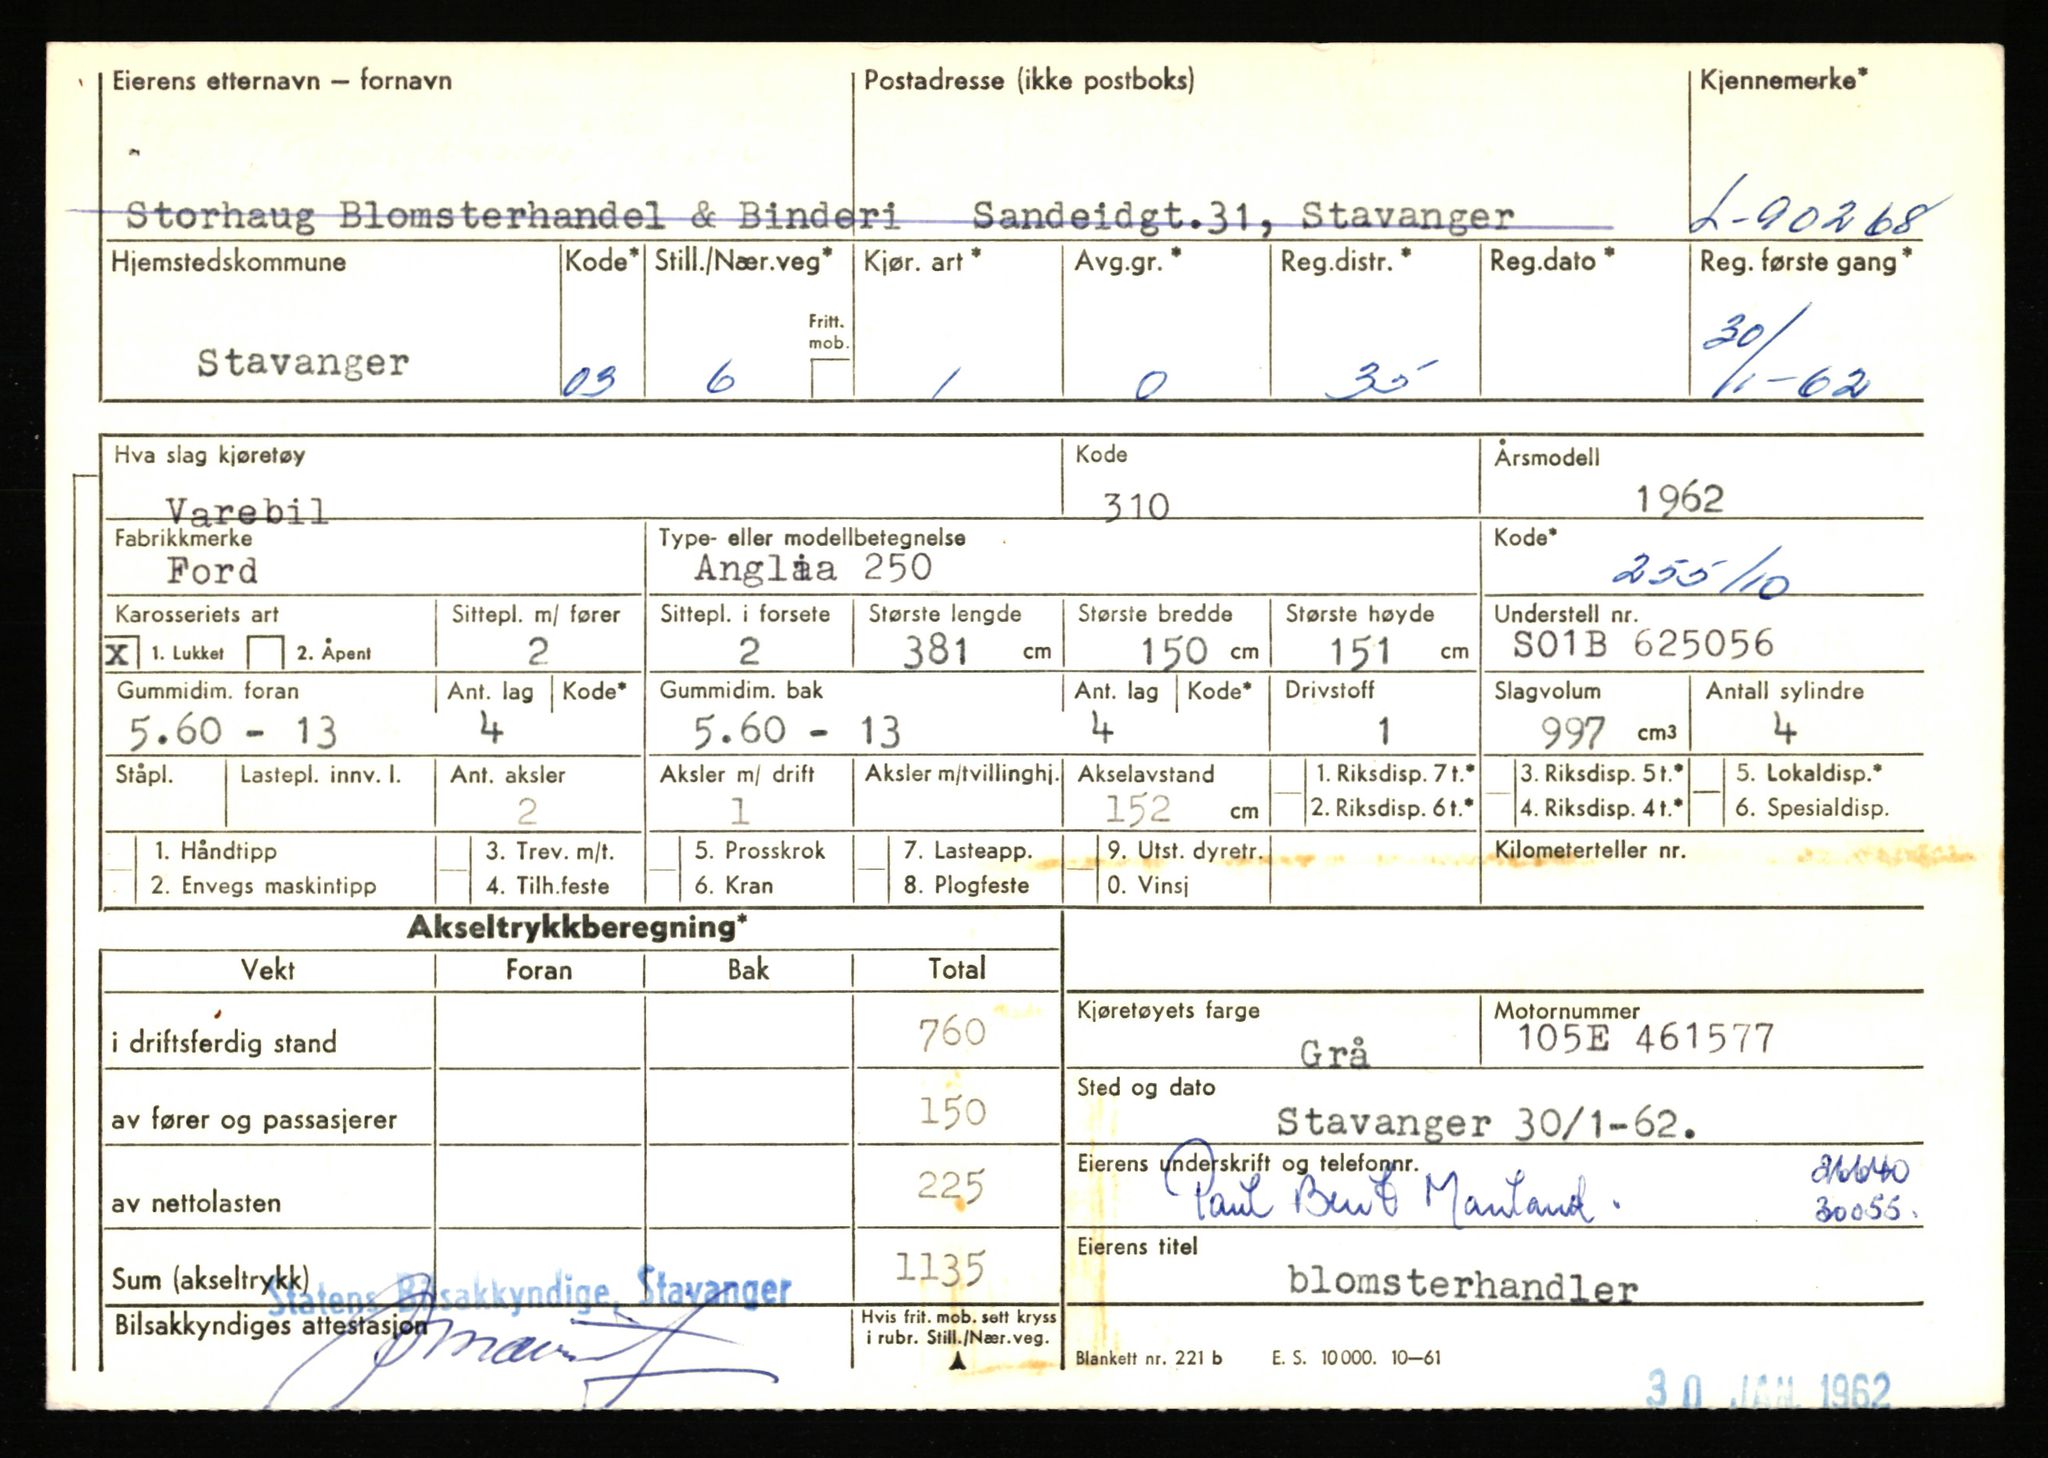 Eierens etternavn – fornavn Postadresse (ikke postboks) Kjennemerke*
Storhaug Blomsterhandel & Binderi Sandeidgt.31, Stavanger L-90268
Hjemstedskommune Kode* Still./Nær.veg* Kjør. art* Avg.gr.* Reg.distr.* Reg.dato* Reg. første gang*
Fritt. mob.
Stavanger 03 6 1 0 35 30/1-62
Hva slag kjøretøy Kode Årsmodell
Varebil 310 1962
Fabrikkmerke Type- eller modellbetegnelse Kode*
Ford Anglia 250 255/10
Karosseriets art Sittepl. m/ fører Sittepl. i forsete Største lengde Største bredde Største høyde Understell nr.
X 1. Lukket 2. Åpent 2 2 381 cm 150 cm 151 cm S01B 625056
Gummidim. foran Ant. lag Kode* Gummidim. bak Ant. lag Kode* Drivstoff Slagvolum Antall sylindre
5.60 - 13 4 5.60 - 13 4 1 997 cm3 4
Ståpl. Lastepl. innv. l. Ant. aksler Aksler m/ drift Aksler m/tvillinghj. Akselavstand 1. Riksdisp. 7 t.* 3. Riksdisp. 5 t.* 5. Lokaldisp.*
2 1 152 cm 2. Riksdisp. 6 t.* 4. Riksdisp. 4 t.* 6. Spesialdisp.
1. Håndtipp 3. Trev. m/t. 5. Prosskrok 7. Lasteapp. 9. Utst. dyretr. Kilometerteller nr.
2. Envegs maskintipp 4. Tilh.feste 6. Kran 8. Plogfeste 0. Vinsj
Akseltrykkberegning*
Vekt Foran Bak Total
i driftsferdig stand 760
av fører og passasjerer 150
av nettolasten 225
Sum (akseltrykk) 1135
Statens Bilsakkyndige, Stavanger
Bilsakkyndiges attestasjon
Hvis frit. mob. sett kryss
i rubr. Still./Nær.veg.
Kjøretøyets farge Motornummer
Grå 105E 461577
Sted og dato
Stavanger 30/1-62.
Eierens underskrift og telefonnr.
Paul Bent Mauland. 30055.
Eierens titel
blomsterhandler
Blankett nr. 221 b E. S. 10 000. 10–61
30 JAN. 1962